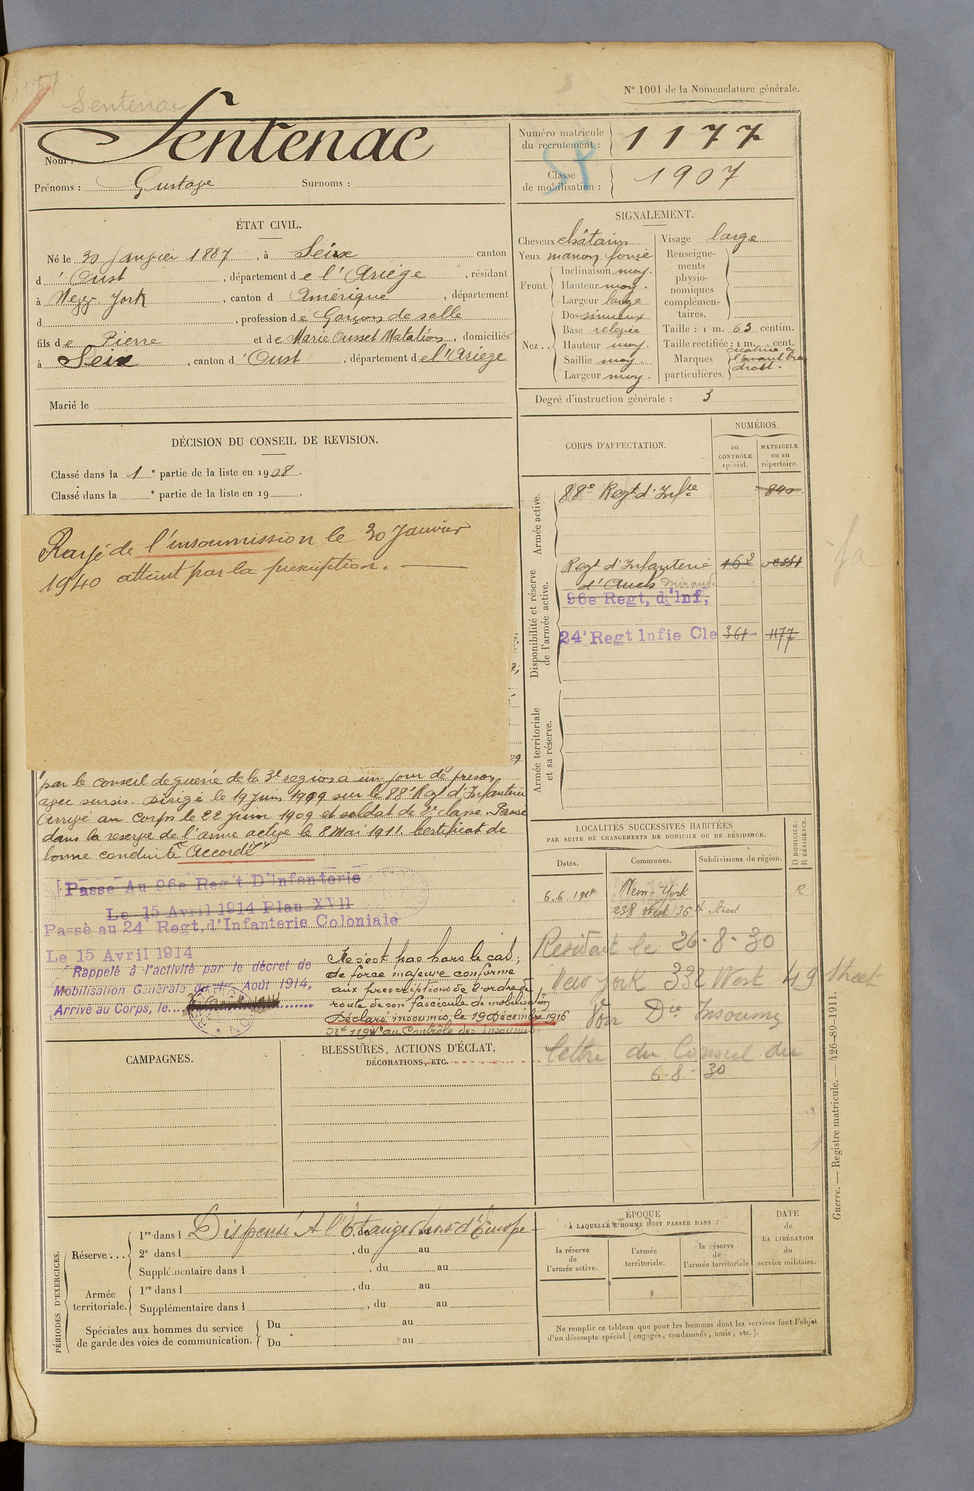 Sentenac
N° 1001 de la Nomenclature générale.
Nom : Sentenac
Prénoms : Gustave Surnoms :
Numéro matricule du recrutement : 1177
Classe de mobilisation : 1907
ÉTAT CIVIL.
Né le 30 Janvier 1887, à Seix canton
d'Oust, département de l'Ariège, résidant
à New York, canton d Amérique, département
d , profession de Garçon de salle
fils de Pierre et de Marie Ousset Matalios, domiciliés
à Seix, canton d'Oust, département de l'Ariège
Marié le
SIGNALEMENT.
Cheveux châtains
Yeux marron foncé
Front. Inclinaison moy.
Hauteur moy.
Largeur large
Nez.. Dos sinueux
Base relevée
Hauteur moy.
Saillie moy.
Largeur moy.
Visage large
Renseignements physionomiques complémentaires.
Taille : 1 m. 63 centim.
Taille rectifiée : 1 m. cent.
Marques particulières. cicatrice à l'avant bras droit.
Degré d'instruction générale : 3
DÉCISION DU CONSEIL DE REVISION.
Classé dans la 1e partie de la liste en 1908.
Classé dans la e partie de la liste en 19 .
CORPS D'AFFECTATION.
NUMÉROS
au CONTRÔLE spécial.
MATRICULE ou au répertoire.
Armée active.
88e Regt d'Infie 840
Disponibilité et réserve de l'armée active.
Regt d'Infanterie
d'Auch
96e Regt, d'Inf,
24e Regt Infie Cle 361 1177
Armée territoriale et sa réserve.
Rayé de l'insoumission le 30 Janvier
1940 atteint par la prescription.
par le conseil de guerre de la région a un jour de prison
avec sursis. Dirigé le 19 juin 1909 sur le 88e Regt d'Infanterie
Arrivé au corps le 22 juin 1909 et soldat de 2e classe. Passé
dans la réserve de l'armée active le 2 Mai 1911. Certificat de
bonne conduite "Accordé"
Passé Au 96e Reg't D'Infanterie
Le 15 Avril 1914 Plan XVII
Passé au 24e Regt, d'Infanterie Coloniale
Le 15 Avril 1914
Rappelé à l'activité par le décret de
Mobilisation Générale du 1er Août 1914,
Arrivé au Corps, le
Ne s'est pas hors le cas
de force majeure conformé
aux prescriptions de l'ordre de
route de son fascicule de mobilisation
Déclaré insoumis le 19 Décembre 1916
au Contrôle des Insoumis
LOCALITÉS SUCCESSIVES HABITÉES
PAR SUITE DE CHANGEMENTS DE DOMICILE OU DE RÉSIDENCE.
Dates. Communes. Subdivisions de région. D DOMICILE. R RÉSIDENCE.
New-York R
238 West 36th Street
Résidait le 26-8-30
New York 332 West 49 Street
Voir Insoumis
lettre du Consul du
6-8-30
CAMPAGNES.
BLESSURES, ACTIONS D'ÉCLAT,
DÉCORATIONS, ETC.
PÉRIODES D'EXERCICES.
Réserve... 1re dans l Dispensé A l'Etranger hors d'Europe
2e dans l , du au
Supplémentaire dans l , du au
Armée territoriale. 1re dans l , du au
Supplémentaire dans l , du au
Spéciales aux hommes du service de garde des voies de communication. Du au
Du au
ÉPOQUE
À LAQUELLE L'HOMME DOIT PASSER DANS :
la réserve de l'armée active.
l'armée territoriale.
la réserve de l'armée territoriale
DATE de LA LIBÉRATION du service militaire.
Ne remplir ce tableau que pour les hommes dont les services font l'objet
d'un décompte spécial (engagés, condamnés, omis, etc.).
Guerre. — Registre matricule. — 426-89-1911.